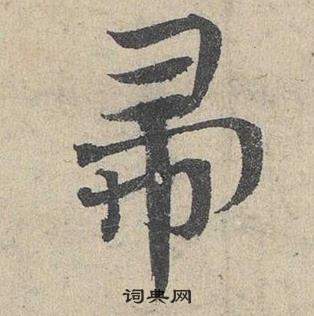 帚
词典网